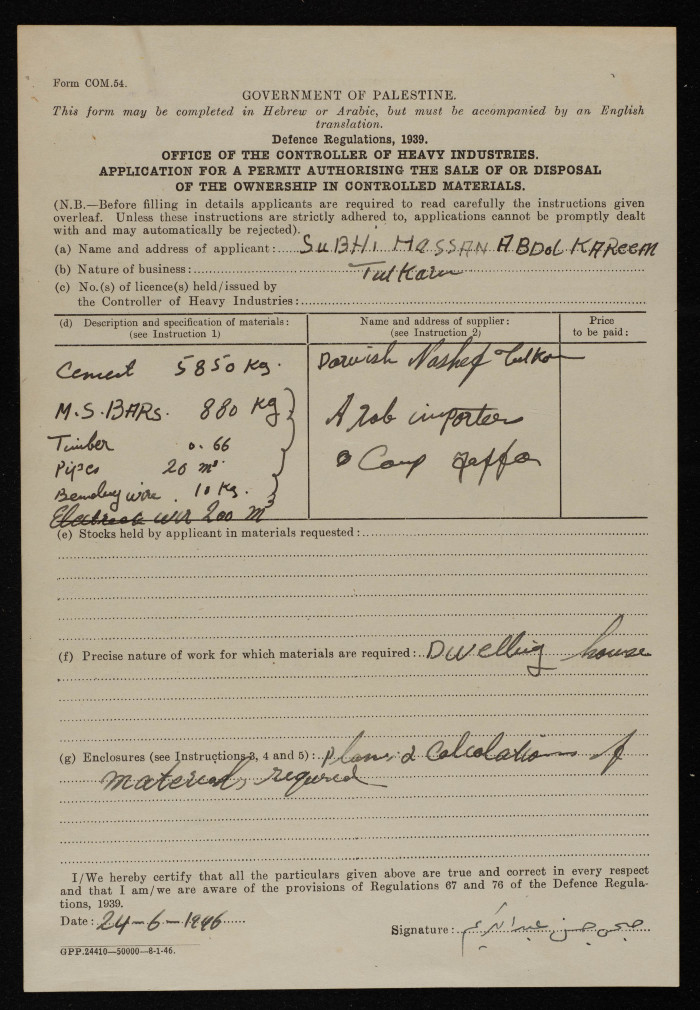 Form COM.54.
GOVERNMENT OF PALESTINE.
This form may be completed in Hebrew or Arabic, but must be accompanied by an English
translation.
Defence Regulations, 1939.
OFFICE OF THE CONTROLLER OF HEAVY INDUSTRIES.
APPLICATION FOR A PERMIT AUTHORISING THE SALE OF OR DISPOSAL
OF THE OWNERSHIP IN CONTROLLED MATERIALS.
(N.B.—Before filling in details applicants are required to read carefully the instructions given
overleaf. Unless these instructions are strictly adhered to, applications cannot be promptly dealt
with and may automatically be rejected).
(a) Name and address of applicant: SUBHI HASSAN ABDOL KAREEM
(b) Nature of business: Tulkarm
(c) No.(s) of licence(s) held/issued by
the Controller of Heavy Industries:
(d) Description and specification of materials:
(see Instruction 1)
Name and address of supplier:
(see Instruction 2)
Price
to be paid:
Cement 5850 Kg.
Darwish Nashef Tulka
M.S. BARs. 880 Kg
Arab importers
Timber 0.66
Pipes 20 m
Comp Jaffa
Bending wire. 10 Kg.
wir 200 m
(e) Stocks held by applicant in materials requested:
(f) Precise nature of work for which materials are required: Dwelling house
(g) Enclosures (see Instructions 3, 4 and 5): Plans & Calculations of
materials required
I/We hereby certify that all the particulars given above are true and correct in every respect
and that I am/we are aware of the provisions of Regulations 67 and 76 of the Defence Regula-
tions, 1939.
Date: 24-6-1946
Signature: صبحي حسن عبد الكريم
GPP.24410—50000—8-1-46.